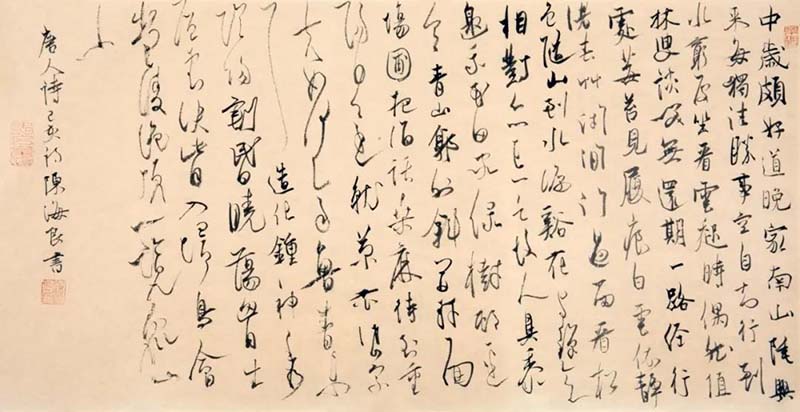 中歲頗好道晚家南山陲興
來每獨往勝事空自知行到
水窮處坐看雲起時偶然值
林叟談笑無還期一路經行
處莓苔見履痕白雲依靜
渚春艸閉閒門過雨看松
色隨山到水源谿花與禪意
相對亦忘言故人具雞
黍邀我至田家綠樹村邊
合青山郭外斜開軒面
場圃把酒話桑麻待到重
陽日還來就菊花岱宗
夫如何齊魯青未
了造化鍾神秀
陰陽割昏曉蕩胸生
層雲決眥入歸鳥會
當凌絕頂一覽眾山
小
唐人詩己亥初陳海良書